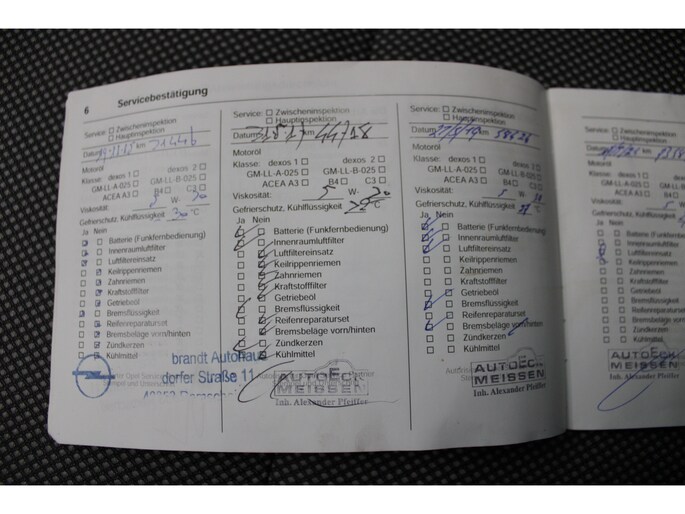 6 Servicebestätigung
Service: Zwischeninspektion
Hauptinspektion
Datum km 21446
Motoröl
Klasse: dexos 1 dexos 2
GM-LL-A-025 GM-LL-B-025
ACEA A3 B4 C3
Viskosität: 5 W- 30
Gefrierschutz, Kühlflüssigkeit 30 °C
Ja Nein
Batterie (Funkfernbedienung)
Innenraumluftfilter
Luftfiltereinsatz
Keilrippenriemen
Zahnriemen
Kraftstofffilter
Getriebeöl
Bremsflüssigkeit
Reifenreparaturset
Bremsbeläge vorn/hinten
Zündkerzen
Kühlmittel
brandt Autohaus
dorfer Straße 11
Service: Zwischeninspektion
Hauptinspektion
Datum 44718
Motoröl
Klasse: dexos 1 dexos 2
GM-LL-A-025 GM-LL-B-025
ACEA A3 B4 C3
Viskosität: 5 W- 30
Gefrierschutz, Kühlflüssigkeit °C
Ja Nein
Batterie (Funkfernbedienung)
Innenraumluftfilter
Luftfiltereinsatz
Keilrippenriemen
Zahnriemen
Kraftstofffilter
Getriebeöl
Bremsflüssigkeit
Reifenreparaturset
Bremsbeläge vorn/hinten
Zündkerzen
Kühlmittel
AUTOECK
MEISSEN
Inh. Alexander Pfeiffer
Service: Zwischeninspektion
Hauptinspektion
Datum km 58626
Motoröl
Klasse: dexos 1 dexos 2
GM-LL-A-025 GM-LL-B-025
ACEA A3 B4 C3
Viskosität: 5 W-
Gefrierschutz, Kühlflüssigkeit °C
Ja Nein
Batterie (Funkfernbedienung)
Innenraumluftfilter
Luftfiltereinsatz
Keilrippenriemen
Zahnriemen
Kraftstofffilter
Getriebeöl
Bremsflüssigkeit
Reifenreparaturset
Bremsbeläge vorn/hinten
Zündkerzen
Kühlmittel
AUTOECK
MEISSEN
Inh. Alexander Pfeiffer
Service: Zwischeninspektion
Hauptinspektion
Datum
Motoröl
Klasse: dexos 1
GM-LL-A-025
ACEA A3
Viskosität:
Gefrierschutz, Kühlflüssigkeit
Ja Nein
Batterie (Funkfernbed
Innenraumluftfilter
Luftfiltereinsatz
Keilrippenriemen
Zahnriemen
Kraftstofffilter
Getriebeöl
Bremsflüssigkeit
Reifenreparaturset
Bremsbeläge vorn/h
Zündkerzen
Kühlmittel
AUTOECK
MEISSEN
Inh. Alexander Pfeiffer